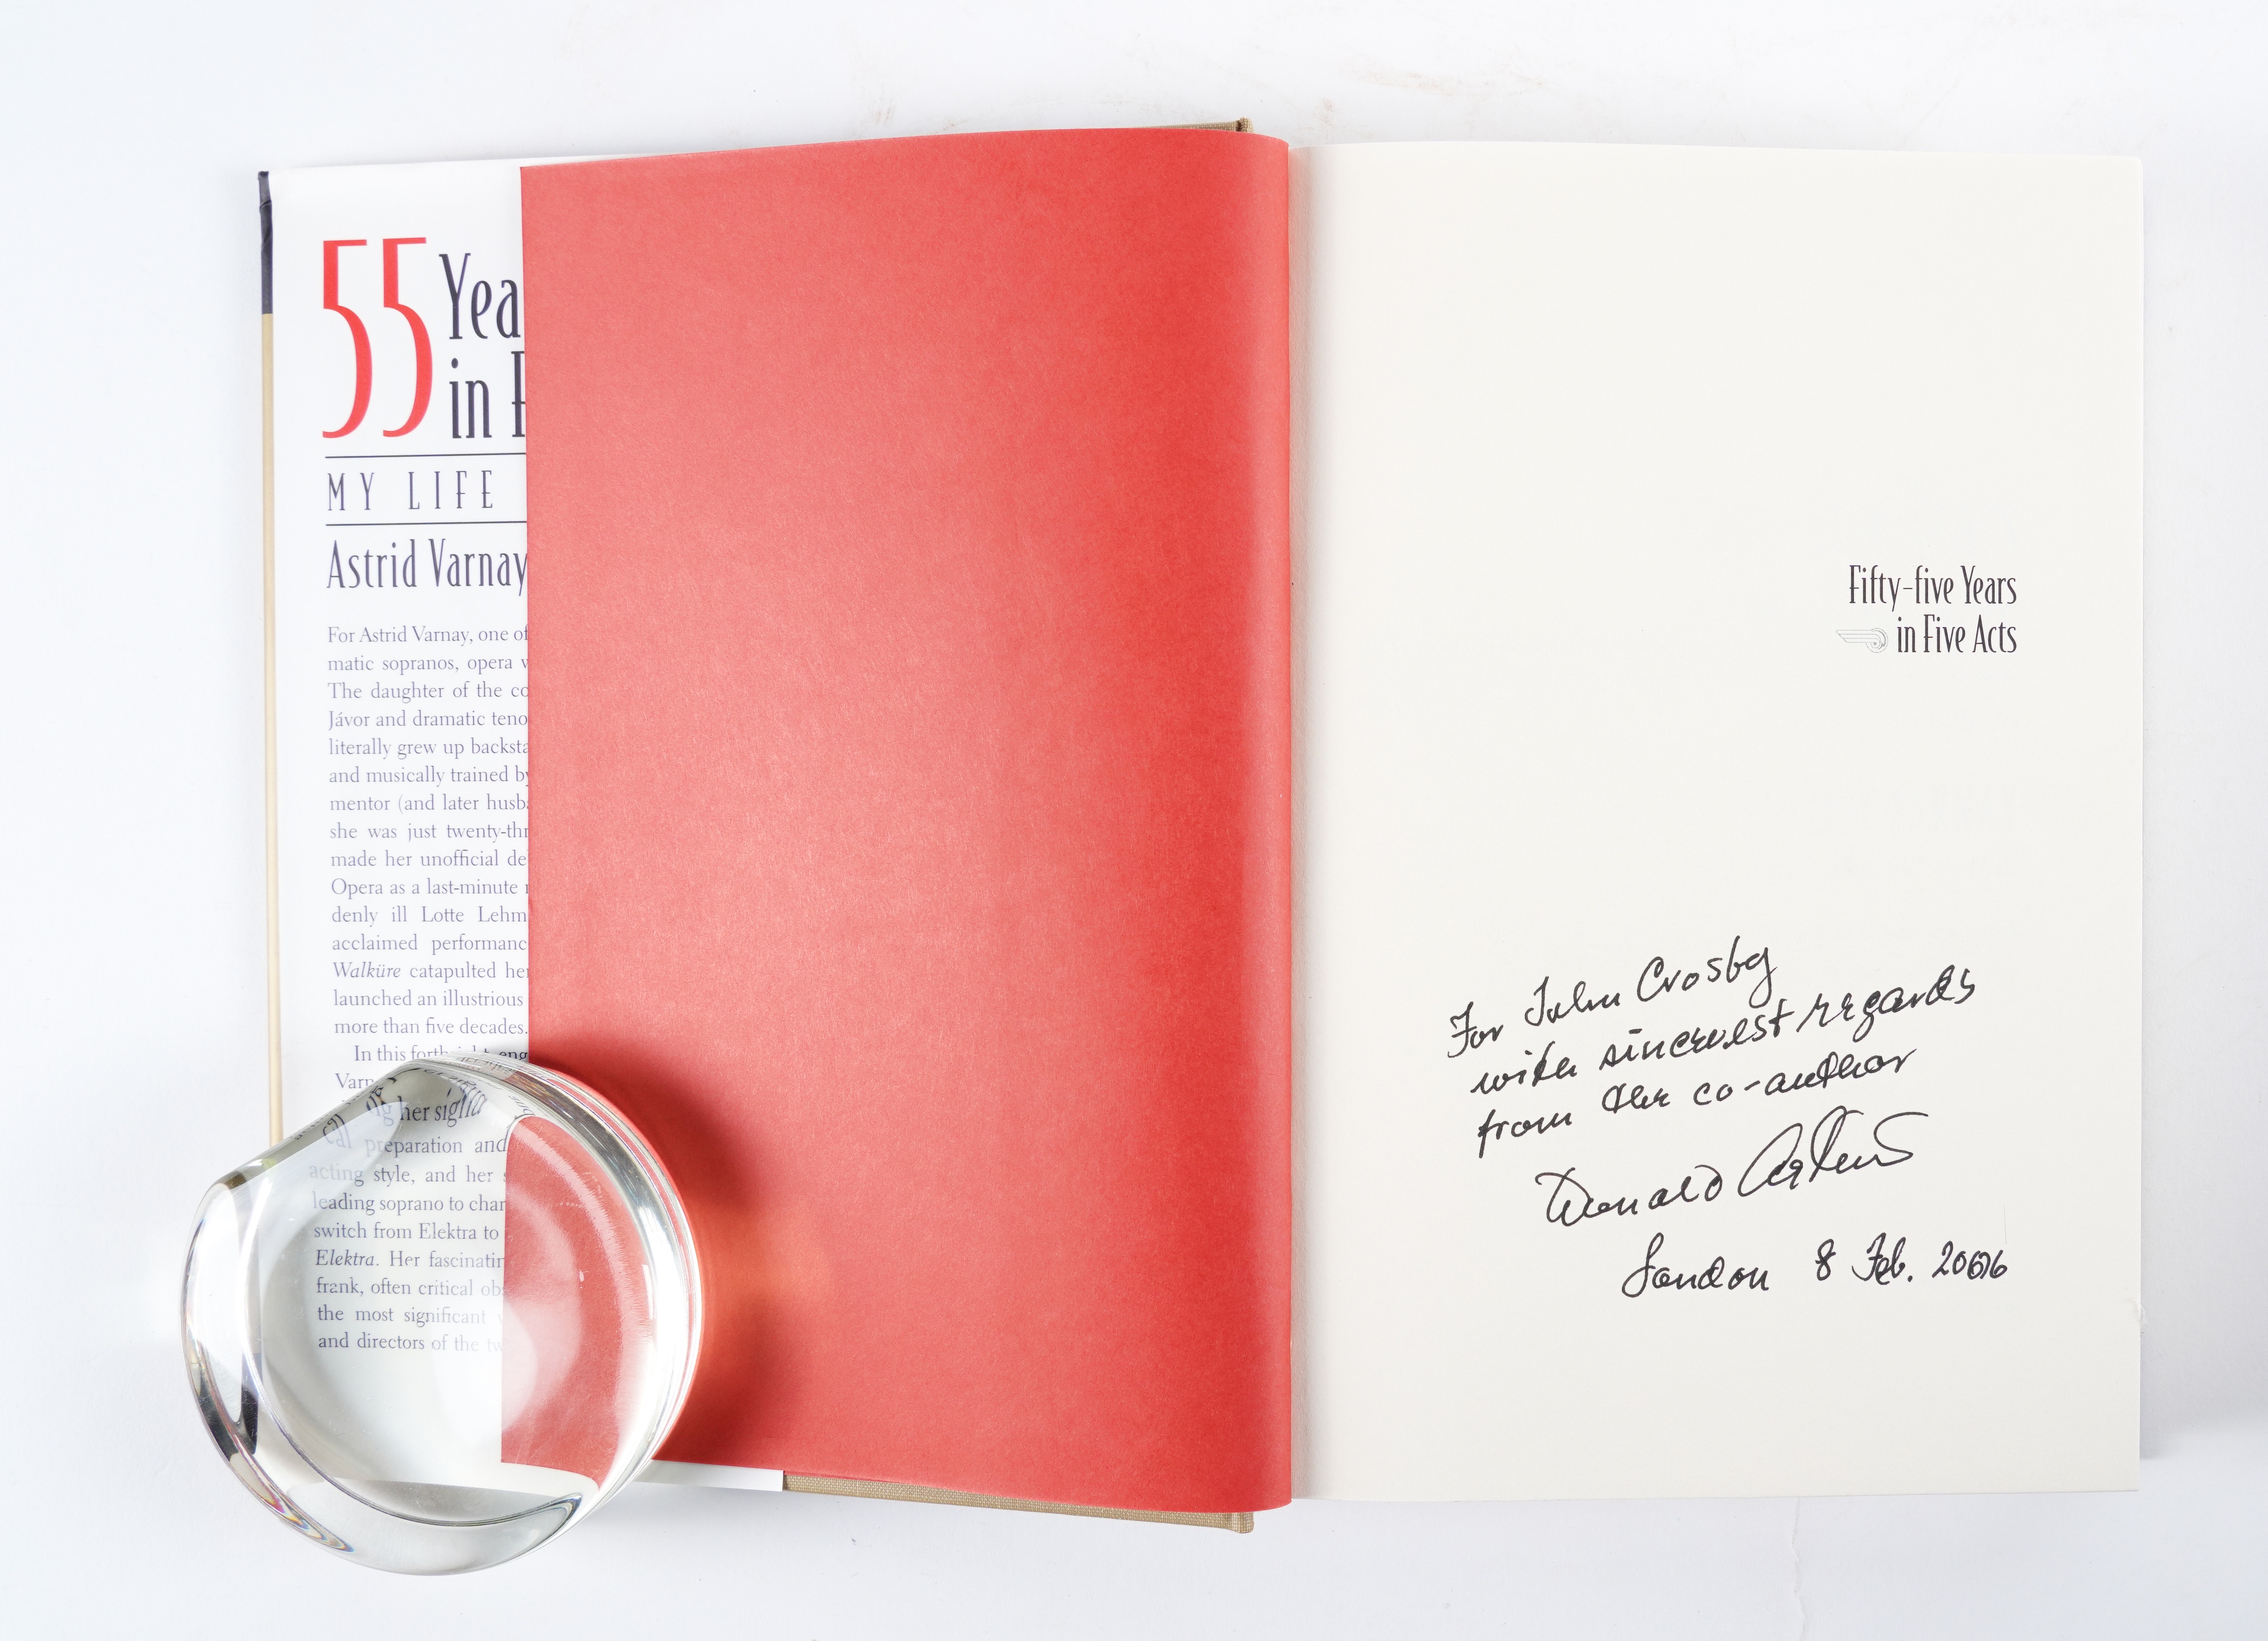 55 Yea
in F
MY LIFE
Astrid Varnay
For Astrid Varnay, one of
matic sopranos, opera w
The daughter of the co
Jávor and dramatic teno
literally grew up backsta
and musically trained by
mentor (and later husb
she was just twenty-thr
made her unofficial de
Opera as a last-minute r
denly ill Lotte Lehm
acclaimed performanc
Walküre catapulted her
launched an illustrious
more than five decades.
In this forthright eng
Varn
ng her signa
cal preparation and
acting style, and her s
leading soprano to char
switch from Elektra to
Elektra. Her fascinatin
frank, often critical obs
the most significant
and directors of the tw
Fifty-five Years
in Five Acts
For John Crosby
with sincerest regards
from the co-author
Donald Arthur
London 8 Feb. 2006